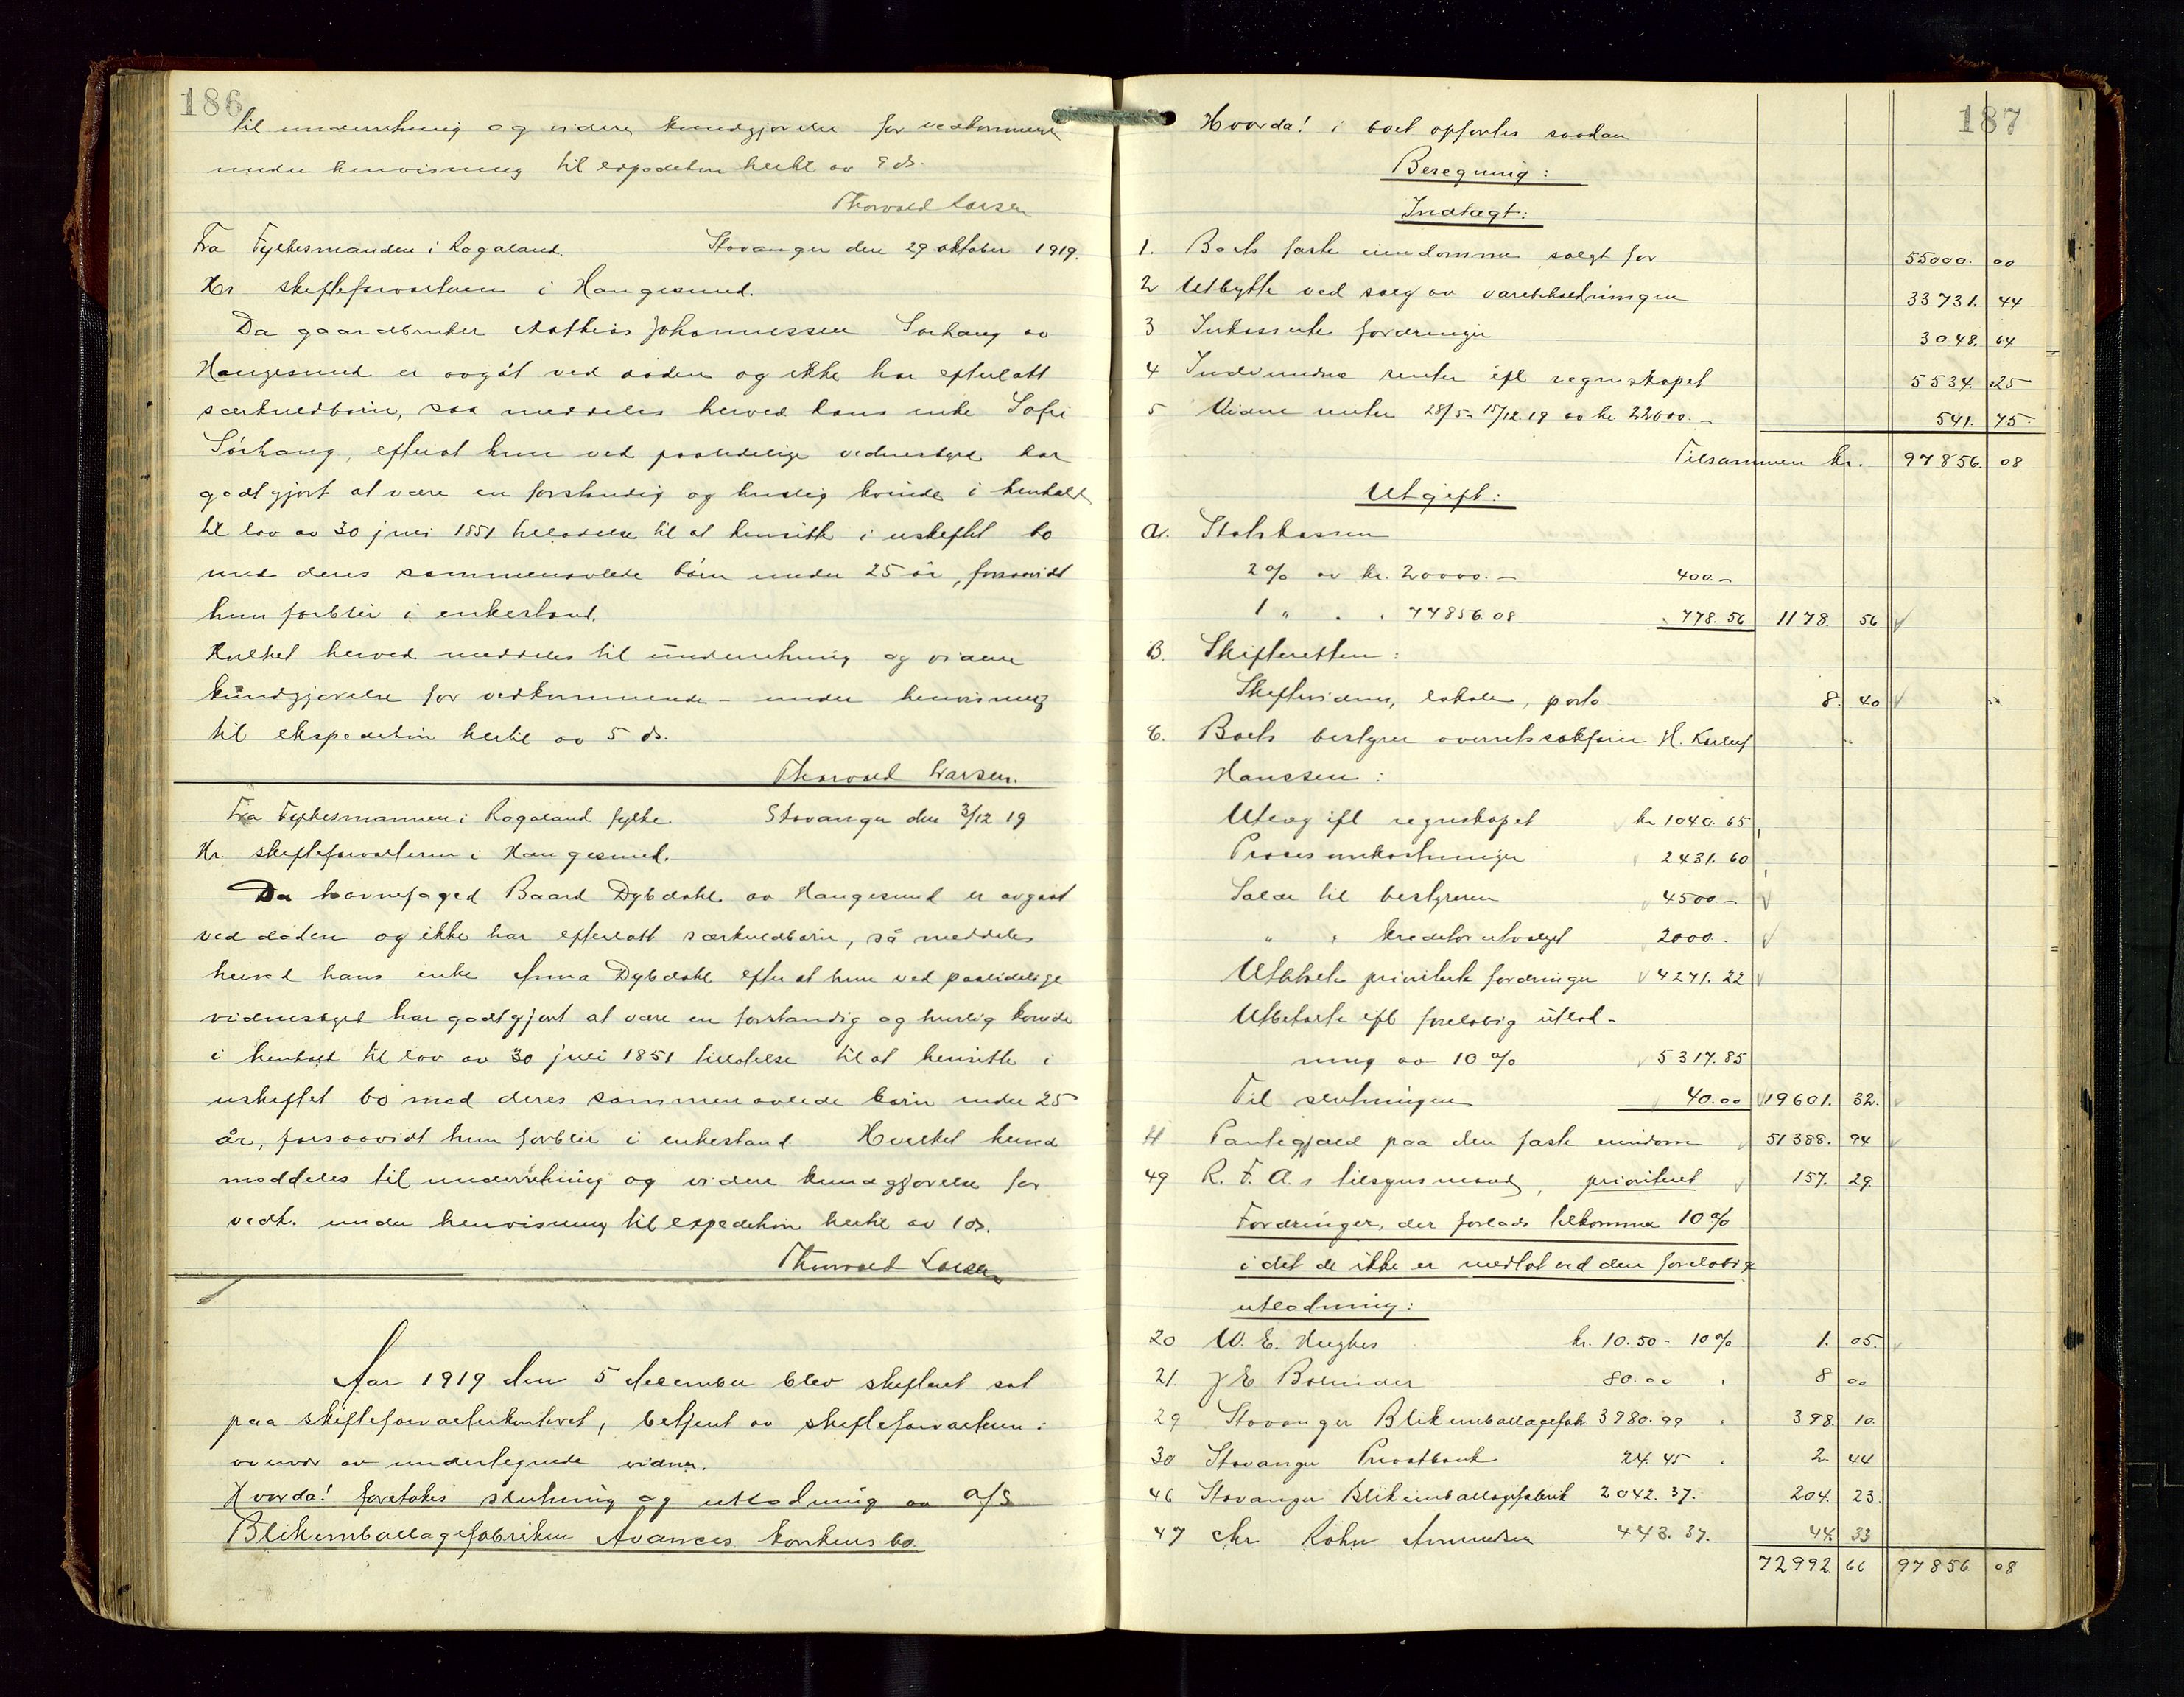 186
til underretning og videre kundgjørelse for vedkommende
under henvisning til expedition hertil av 8 ds.
Thorvald Larsen
Fra Fylkesmanden i Rogaland. Stavanger den 29 oktober 1919.
Hr skifteforvalteren i Haugesund.
Da gaardbruker Mathias Johannessen Sørhaug av
Haugesund er avgåt ved døden og ikke har efterlatt
særkuldbørn, saa meddeles herved hans enke Sofie
Sørhaug, efterat hun ved paalidelige vidnesbyrd har
godtgjort at være en forstandig og huslig kvinde i henhold
til lov av 30 juli 1851 tilladelse til at hensitte i uskiftet bo
med deres sammenavlede børn under 25 år, forsaavidt
hun forblir i enkestand.
Hvilket herved meddeles til underretning og videre
kundgjørelse for vedkommende - under henvisning
til ekspedition hertil av 5 ds.
Thorvald Larsen.
Fra Fylkesmannen i Rogaland fylke. Stavanger den 3/12 19
Hr. skifteforvalteren i Haugesund.
Da havnefoged Baard Dybdahl av Haugesund er avgaat
ved døden og ikke har efterlatt særkuldbørn, så meddeles
herved hans enke Anna Dybdahl efter at hun ved paalidelige
vidnesbyrd har godtgjort at være en forstandig og huslig kvinde
i henhold til lov av 30 juli 1851 tilladelse til at hensitte i
uskiftet bo med deres sammenavlede børn under 25
år, forsaavidt hun forblir i enkestand Hvilket herved
meddeles til underretning og videre kundgjørelse for
vedk. under henvisning til expedition hertil av 1 ds.
Thorvald Larsen
Aar 1919 den 5 december blev skifteret sat
paa skifteforvalterkontoret, betjent av skifteforvalteren i
nærvær av undertegnede vidner.
Hvorda! foretokes slutning og utlodning av A/S
Blikemballagefabriken Avances konkursbo.
187
Hvorda! i boet opførtes saadan
Beregning:
Indtægt:
1. Boets faste eiendomme solgt for 55000. 00
2 Utbytte ved salg av varebeholdningen 33731. 44
3 Inkasserte fordringer 3048. 64
4 Indvundne renter ifl regnskapet 5534. 25
5 Videre renter 28/5 - 15/12.19 av kr 22000. - 541. 75
Tilsammen kr. 97856. 08
Utgift:
A. Statskassen
2% av kr. 20000. - 400. -
1 " . . 77856.08 778.56 1178. 56
B. Skifteretten:
Skiftevidner, lokale, porto 8. 40
C. Boets bestyrer overretssakfører H.
Hanssen:
Utlæg ifl regnskapet kr 1040.65
Procesomkostninger 2431.60
Salær til bestyreren 4500. -
" " kreditorutvalget 2000.
Utbetalte prioriterte fordringer 4271.22
Utbetalte ifl foreløbig utlod-
ning av 10% 5317.85
Til slutningen 40.00 19601. 32.
H Pantegjæld paa den faste eiendom 51388. 94
49 R. F. A. s tilsynsmand, prioriteret 157. 29
Fordringer, der forlods tilkommer 10%
i det de ikke er medtat ved den foreløbige
utlodning:
20 W. E. Hughes kr. 10.50 - 10% 1. 05.
21. J E Bolinder 80.00 . 8 00
29 Stavanger Blikemballagefab. 3980.99 . 398. 10
30 Stavanger Privatbank 24.45 . 2 44
46 Stavanger Blikemballagefabrik 2042.37. 204. 23
47 Chr 443.37. 44. 33
72992 66 97856 08